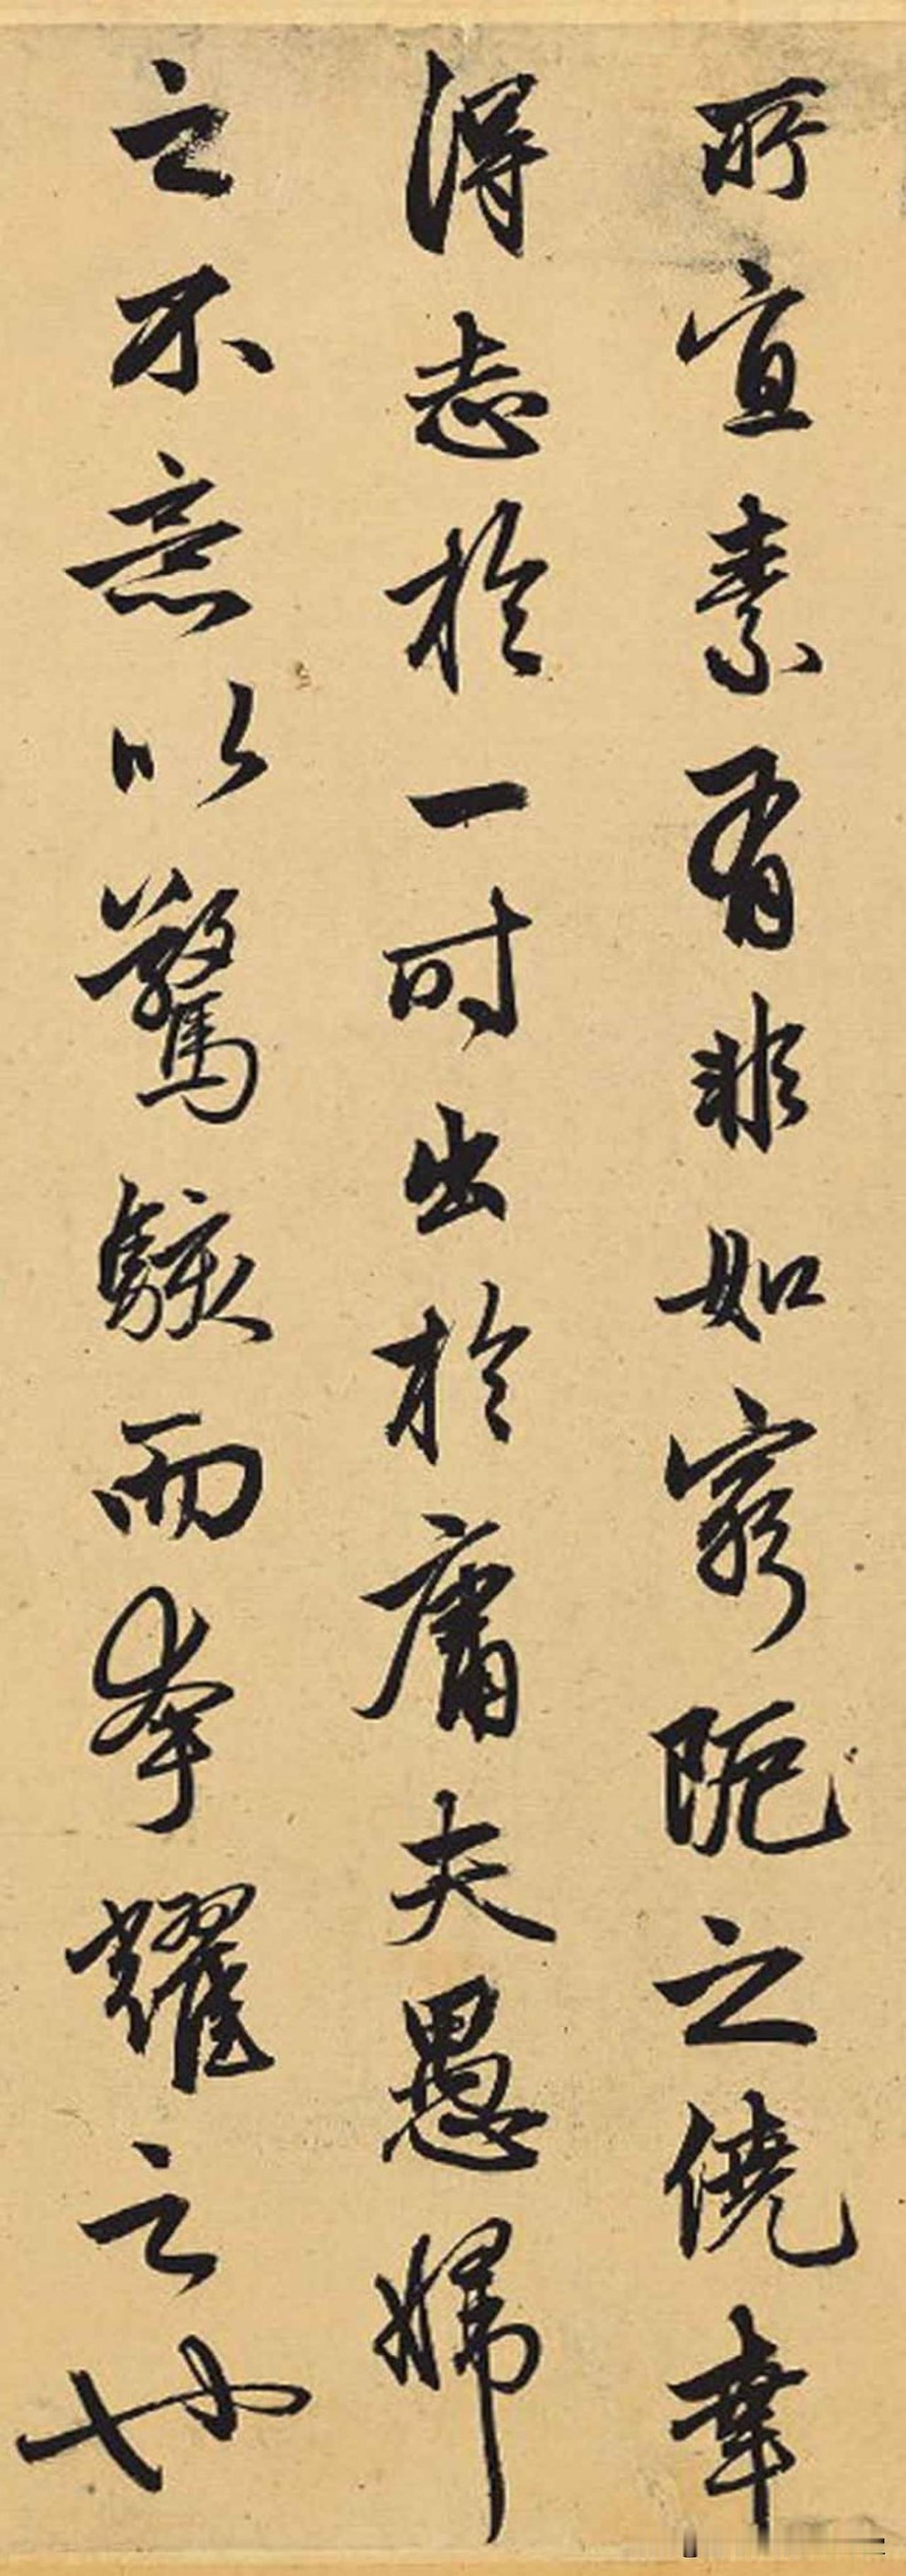 所宜素有非如窮阨之僥幸
得志於一时出於庸夫愚婦
之不意以驚駭而夸耀之也